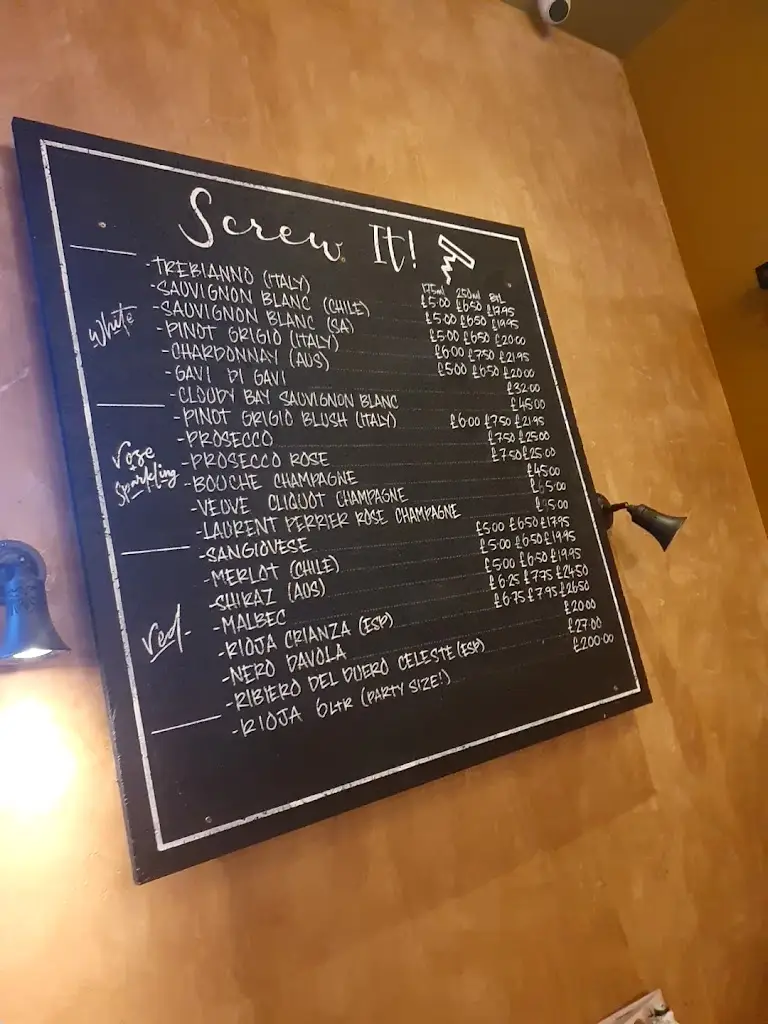 Screw It!
175ml 250ml Btl
White
-TREBIANNO (ITALY) £5.00 £6.50 £17.95
-SAUVIGNON BLANC (CHILE) £5.00 £6.50 £19.95
-SAUVIGNON BLANC (SA) £5.00 £6.50 £20.00
-PINOT GRIGIO (ITALY) £6.00 £7.50 £21.95
-CHARDONNAY (AUS) £5.00 £6.50 £20.00
-GAVI DI GAVI £32.00
-CLOUDY BAY SAUVIGNON BLANC £45.00
Rose
Sparkling
-PINOT GRIGIO BLUSH (ITALY) £6.00 £7.50 £21.95
-PROSECCO £7.50 £25.00
-PROSECCO ROSE £7.50 £25.00
-BOUCHE CHAMPAGNE £45.00
-VEUVE CLIQUOT CHAMPAGNE
-LAURENT PERRIER ROSE CHAMPAGNE
Red
-SANGIOVESE £5.00 £6.50 £17.95
-MERLOT (CHILE) £5.00 £6.50 £19.95
-SHIRAZ (AUS) £5.00 £6.50 £19.95
-MALBEC £6.25 £7.75 £24.50
-RIOJA CRIANZA (ESP) £6.75 £7.95 £26.50
-NERO DAVOLA £20.00
-RIBIERO DEL DUERO CELESTE (ESP) £27.00
-RIOJA 6LTR (PARTY SIZE!) £200.00